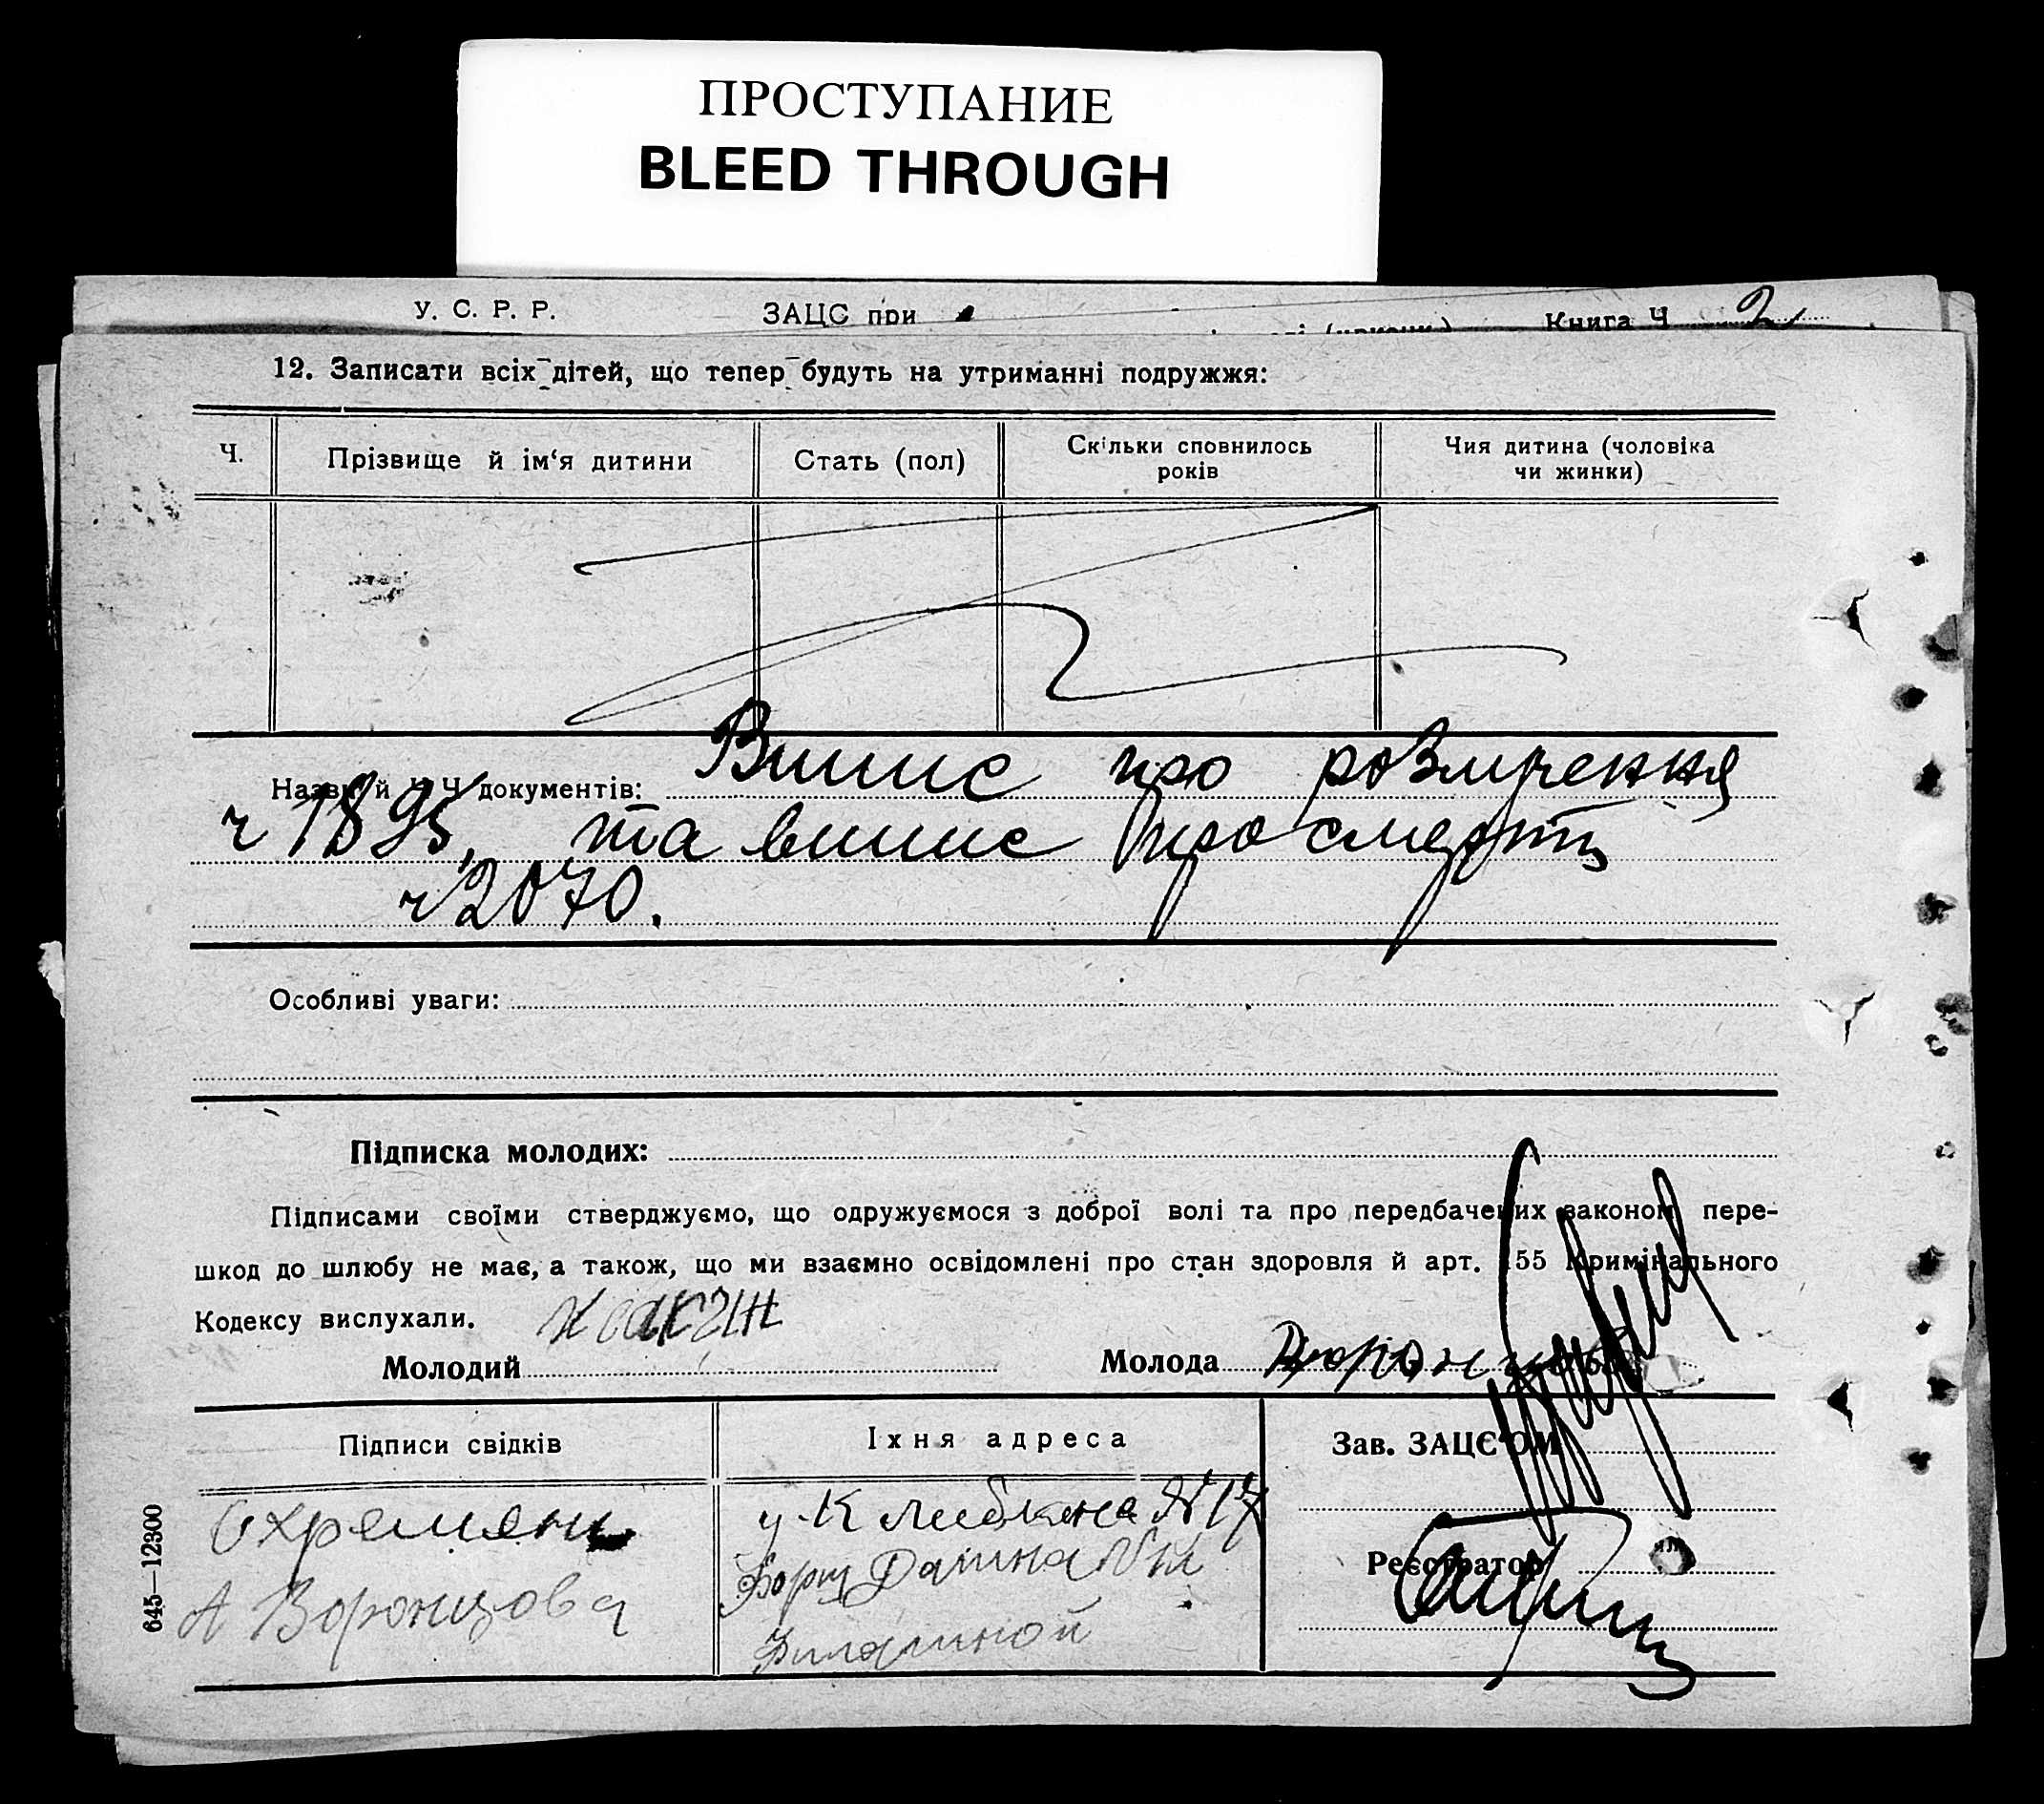 ПРОСТУПАНИЕ
BLEED THROUGH
У. С. Р. Р. ЗАЦС при Книга Ч 2
12. Записати всіх дітей, що тепер будуть на утриманні подружжя:
Ч. Прізвище й ім‘я дитини Стать (пол) Скільки сповнилось років Чия дитина (чоловіка чи жинки)
Назви й Ч Ч документів: Випис про розлучення
ч 1895, та випис про смерть
ч 2070.
Особливі уваги:
Підписка молодих:
Підписами своїми стверджуємо, що одружуємося з доброї волі та про передбачених законом пере-
шкод до шлюбу не має, а також, що ми взаємно освідомлені про стан здоровля й арт. 155 Кримінального
Кодексу вислухали.
Молодий Молода
Підписи свідків Їхня адреса Зав. ЗАЦС‘ОМ
у. К Либкнехта № 17
А Воронцова
Реєстратор
645—12300